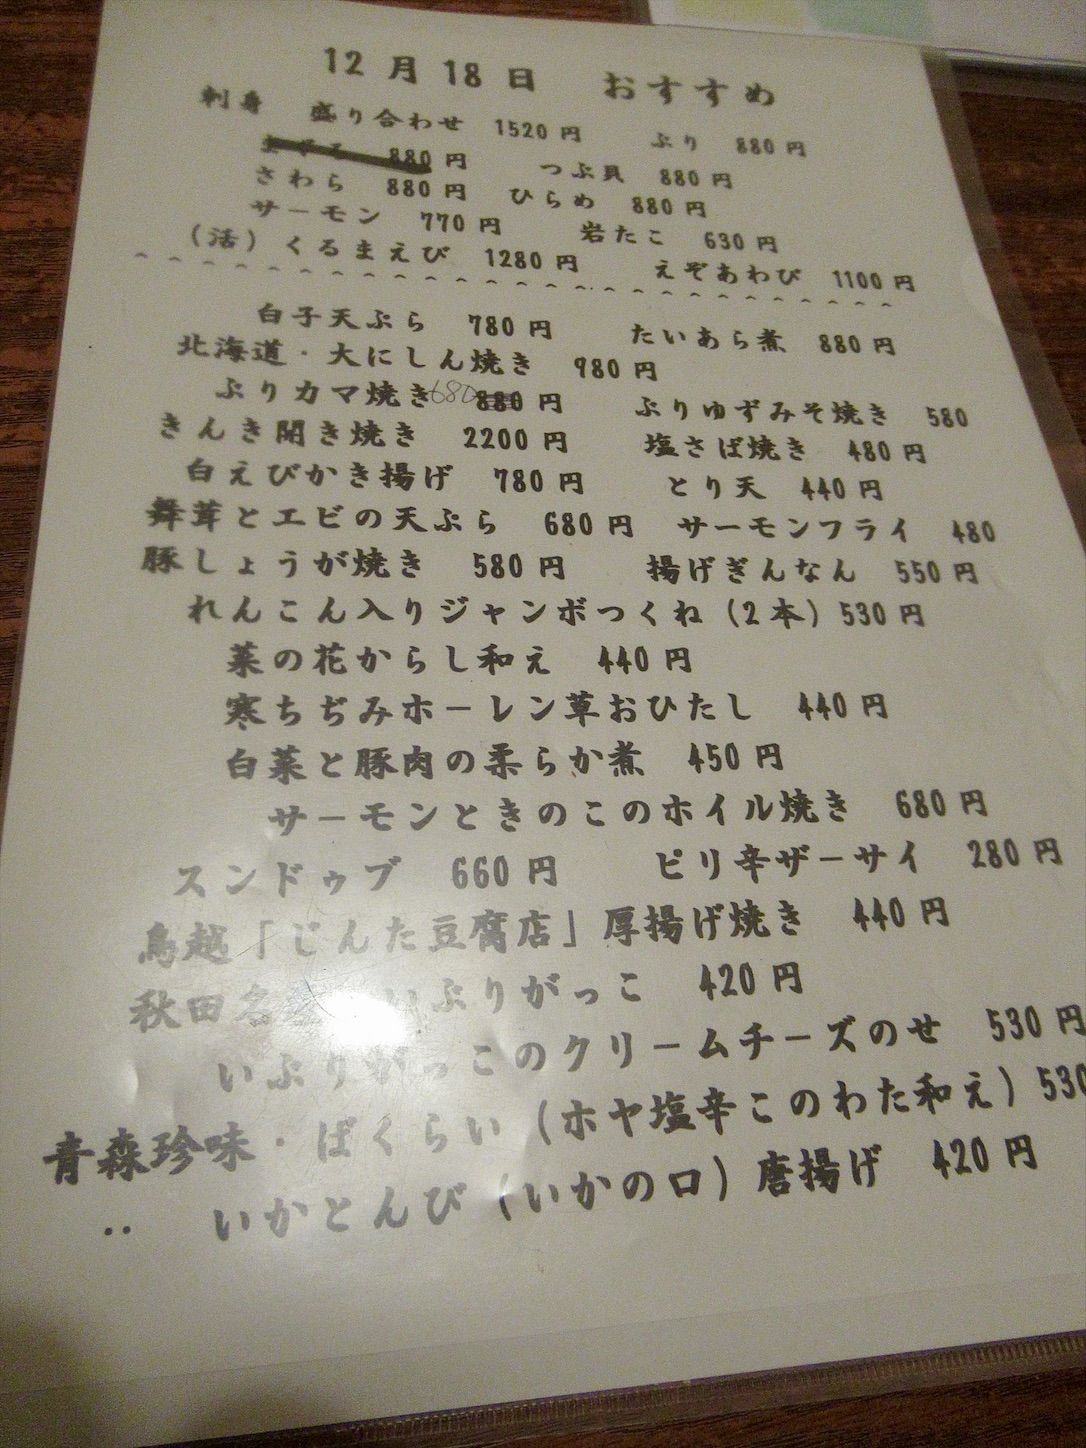 12月18日 おすすめ
刺身 盛り合わせ 1520円 ぶり 880円
880円 つぶ貝 880円
さわら 880円 ひらめ 880円
サーモン 770円 岩たこ 630円
(活)くるまえび 1280円 えぞあわび 1100円
白子天ぷら 780円 たいあら煮 880円
北海道・大にしん焼き 980円
ぶりカマ焼き 680 880円 ぶりゆずみそ焼き 580
きんき開き焼き 2200円 塩さば焼き 480円
白えびかき揚げ 780円 とり天 440円
舞茸とエビの天ぷら 680円 サーモンフライ 480
豚しょうが焼き 580円 揚げぎんなん 550円
れんこん入りジャンボつくね(2本)530円
菜の花からし和え 440円
寒ちぢみホーレン草おひたし 440円
白菜と豚肉の柔らか煮 450円
サーモンときのこのホイル焼き 680円
スンドゥブ 660円 ピリ辛ザーサイ 280円
鳥越「じんた豆腐店」厚揚げ焼き 440円
秋田名 いぶりがっこ 420円
いぶりがっこのクリームチーズのせ 530円
青森珍味・ばくらい(ホヤ塩辛このわた和え)530
‥ いかとんび(いかの口)唐揚げ 420円